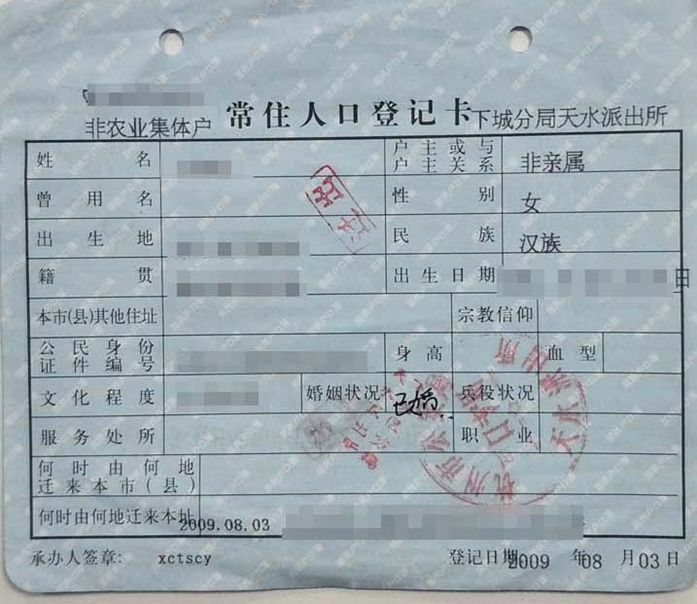 非农业集体户 常住人口登记卡 下城分局天水派出所
姓名 户主或与户主关系 非亲属
曾用名 性别 女
出生地 民族 汉族
籍贯 出生日期 日
本市(县)其他住址 宗教信仰
公民身份证件编号 身高 血型
文化程度 婚姻状况 已婚 兵役状况
服务处所 职业
何时由何地迁来本市(县)
何时由何地迁来本址 2009.08.03
承办人签章: xctscy 登记日期: 2009 年 08 月 03 日